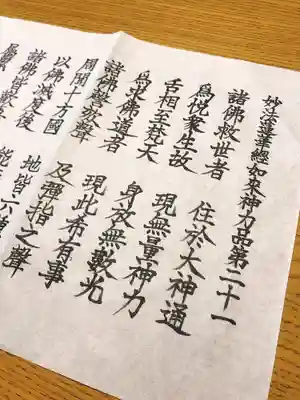 妙法蓮華經如来神力品第二十一
諸佛救世者 住於大神通
為悦衆生故 現無量神力
舌相至梵天 身放無數光
為求佛道者 現此希有事
諸佛謦欬聲 及彈指之聲
周聞十方國 地皆六種
以佛滅度後 能
諸佛皆歓喜